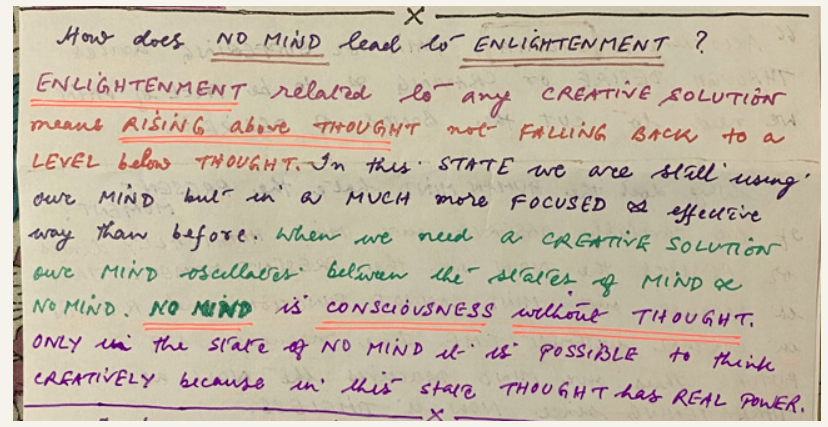 How does NO MIND lead to ENLIGHTENMENT ?
ENLIGHTENMENT related to any CREATIVE SOLUTION
means RISING above THOUGHT not FALLING BACK to a
LEVEL below THOUGHT. In this STATE we are still using
our MIND but in a MUCH more FOCUSED & effective
way than before. When we need a CREATIVE SOLUTION
our MIND oscillates between the states of MIND &
NO MIND. NO MIND is CONSCIOUSNESS without THOUGHT.
ONLY in the state of NO MIND it is POSSIBLE to think
CREATIVELY because in this state THOUGHT has REAL POWER.